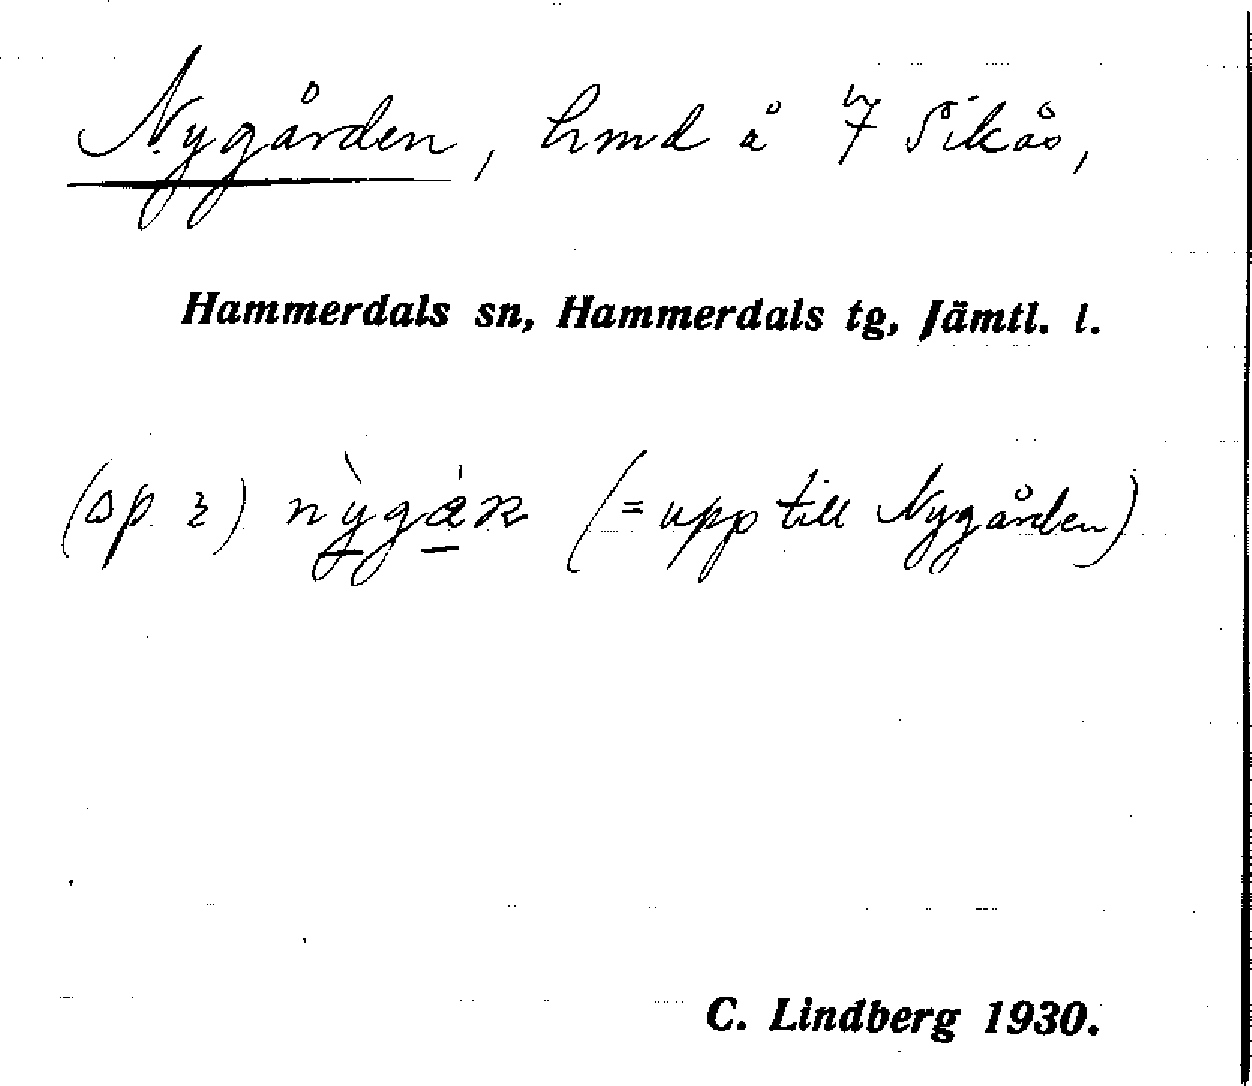 Nygården, hmd å 7 Sikås,
Hammerdals sn, Hammerdals tg, Jämtl. l.
(sp. 2) nỳgáʀ (= upp till Nygården)
C. Lindberg 1930.